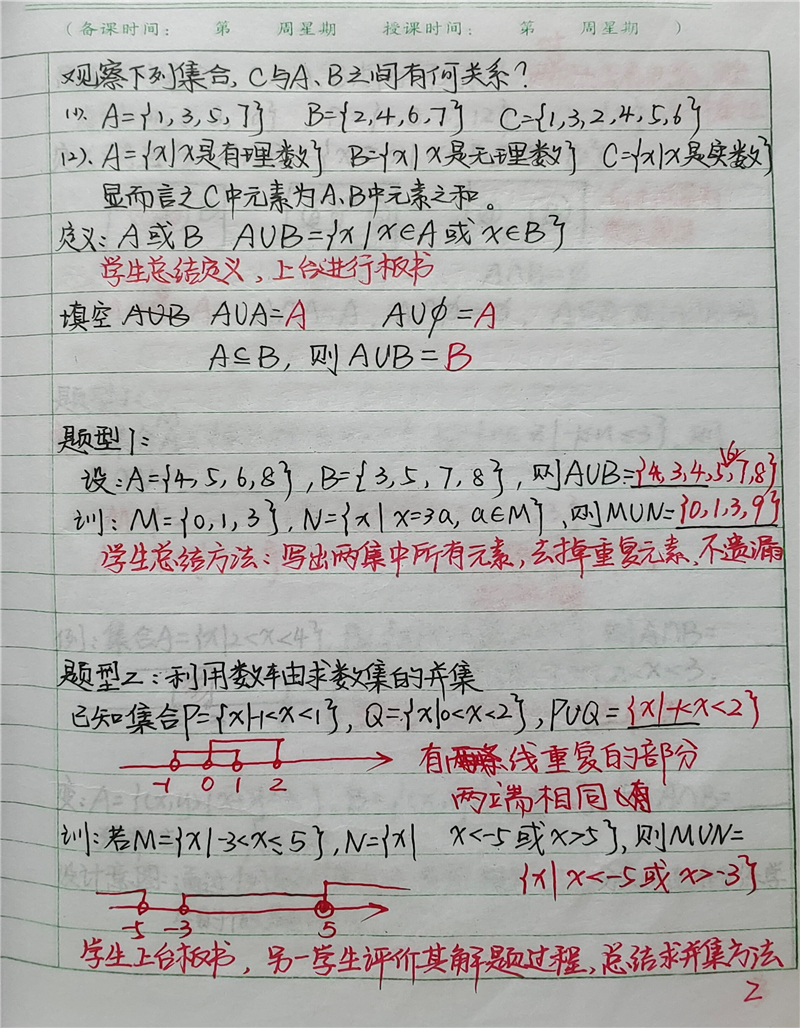 （备课时间： 第 周星期 授课时间： 第 周星期 ）
观察下列集合, C与A、B之间有何关系？
(1). A={1,3,5,7} B={2,4,6,7} C={1,3,2,4,5,6}
(2). A={x|x是有理数} B={x|x是无理数} C={x|x是实数}
显而言之C中元素为A、B中元素之和。
定义：A或B A∪B={x|x∈A或x∈B}
学生总结定义，上台进行板书
填空 A∪B A∪A=A A∪∅=A
A⊆B，则A∪B=B
题型1：
设：A={4,5,6,8}, B={3,5,7,8}, 则A∪B={4,3,4,5,6,7,8}
训：M={0,1,3}, N={x|x=3a, a∈M}, 则M∪N={0,1,3,9}
学生总结方法：写出两集中所有元素, 去掉重复元素、不遗漏
题型2：利用数轴求数集的并集
已知集合P={x|-1<x<1}, Q={x|0<x<2}, P∪Q={x|-1<x<2}
-1 0 1 2
有两条线重复的部分
两端相同
训：若M={x|-3<x≤5}, N={x| x<-5或x>5}, 则M∪N=
{x|x<-5或x>-3}
-5 -3 5
学生上台板书，另一学生评价其解题过程、总结求并集方法
2